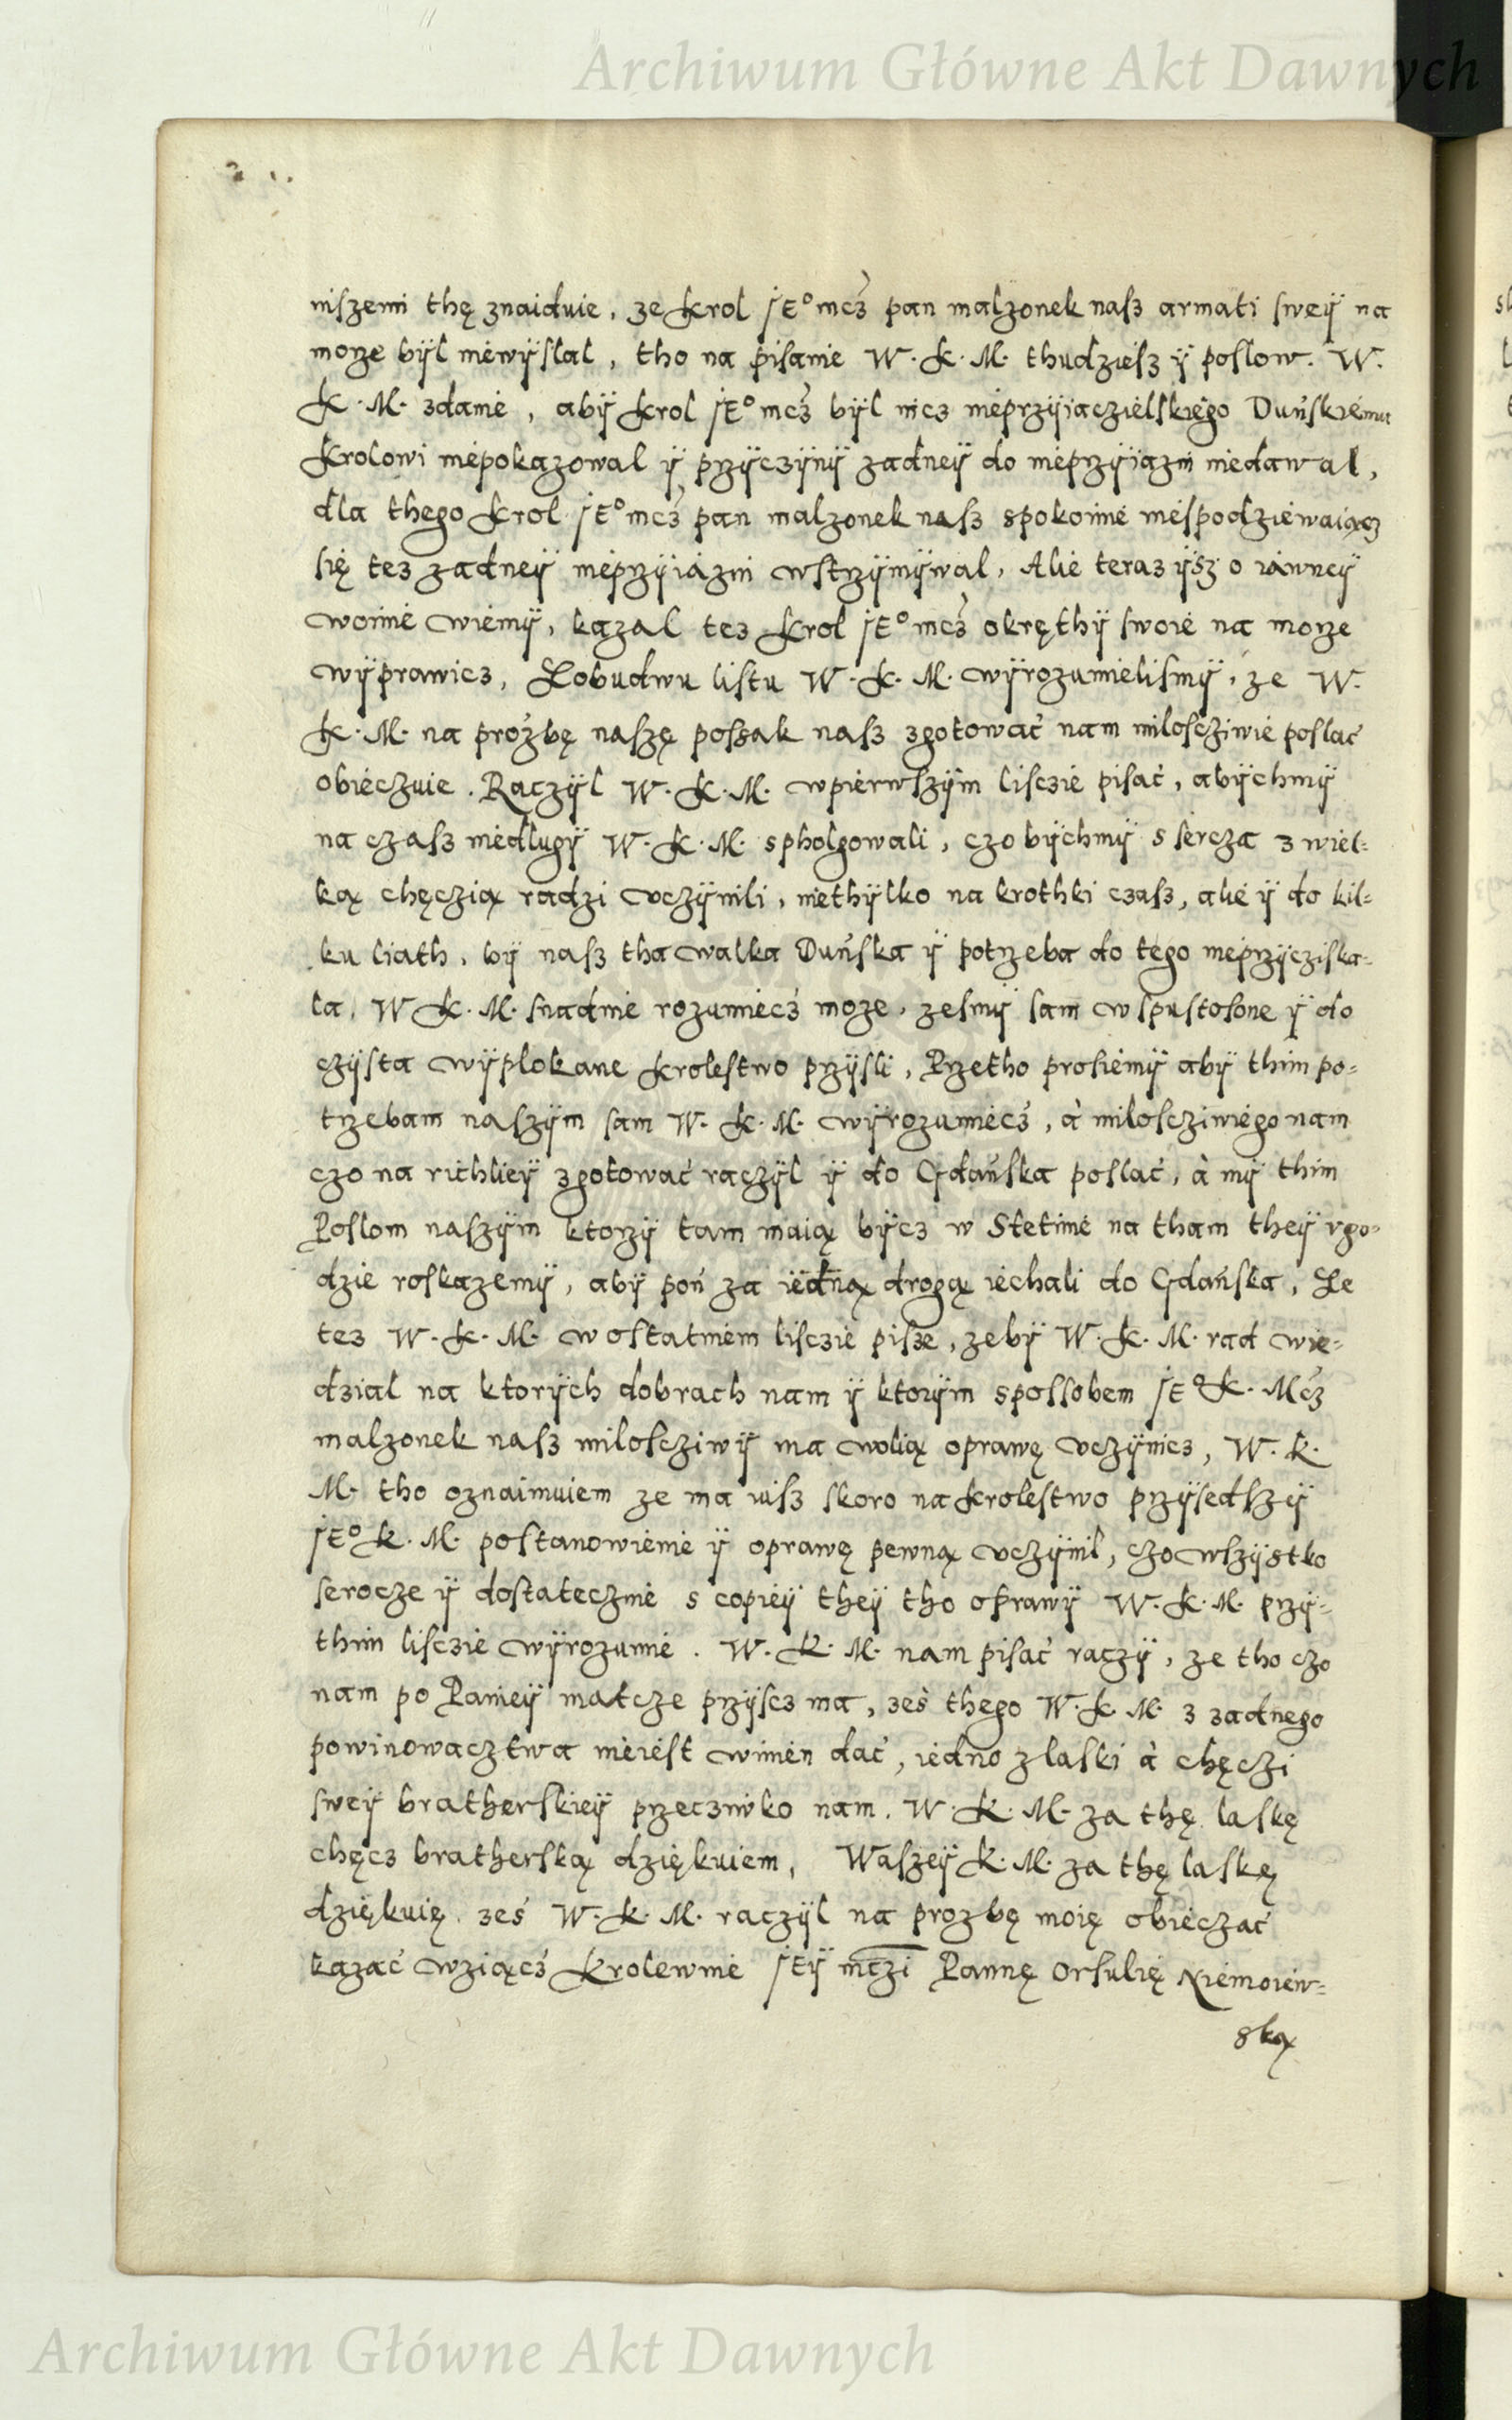 Archiwum Główne Akt Dawnych
niszemi thę znaiduie, ze krol JE° mcź pan malzonek nasz armati sweÿ na
morze bÿl niewÿslal, tho na pisanie W. K. M. thudziesz ÿ poslow. W.
K. M. zdanie, abÿ krol JE° mcź bÿl nicz nieprzÿiaczielskiego Duńskiemu
krolowi niepokazowal ÿ przÿczÿnÿ zadneÿ do nieprzÿiazni niedawal,
dla thego krol JE° mcź pan malzonek nasz spokoinie niespodziewaiącz
się tez zadneÿ nieprzÿiazni wstrzÿmÿwal, Alie teraz ÿsz o iawneÿ
woinie wiemÿ, kazal tez krol JE° mcź okręthÿ swoie na morze
wÿprawicz, Zobudwu listu W. K. M. wÿrozumielismÿ, ze W.
K. M. na prozbę naszę possak nasz zgotować nam miloscziwie poslać
obieczuie. Raczÿl W. K. M. wpierwszÿm lisczie pisać, abÿchmÿ
na czasz niedlugÿ W. K. M. spholgowali, czo bÿchmÿ s sercza z wiel=
ką chęczią radzi vczÿnili, niethÿlko na krothki czasz, alie ÿ do kil=
ku liath, bÿ nasz tha walka Duńska ÿ potrzeba do tego nieprzÿcziska=
la, W K. M. snadnie rozumiecź moze, zesmÿ sam w spustosone ÿ do
czÿsta wÿplokane krolestwo przÿsli, Przetho prosiemÿ abÿ thim po=
trzebam naszÿm sam W. K. M. wÿrozumiecź, à miloscziwiego nam
czo na richlieÿ zgotować raczÿl ÿ do Gdańska poslać, à mÿ thim
Poslom naszÿm ktorzÿ tam maią bÿcz w Stetinie na tham theÿ vgo=
dzie roskazemÿ, abÿ poń za iedną drogą iechali do Gdańska, Ze
tez W. K. M. w ostatniem lisczie pisze, zebÿ W. K. M. rad wie=
dzial na ktorÿch dobrach nam ÿ ktorÿm spossobem JE° K. Mcź
malzonek nasz milosciwÿ ma wolią oprawę vczÿnicz, W. K.
M. tho oznaimuiem ze ma iusz skoro na krolestwo przÿsedszÿ
JE° K. M. postanowienie ÿ oprawę pewną vczÿnil, czo wszÿstko
serocze ÿ dostatecznie s copieÿ theÿ tho oprawÿ W. K. M. przÿ=
thim lisczie wÿrozumie. W. K. M. nam pisać raczÿ, ze tho czo
nam po Panieÿ matcze przÿscz ma, ześ thego W. K. M. z zadnego
powinowacztwa nieiest winien dać, iedno z laski à chęczi
sweÿ bratherskieÿ przecziwko nam. W. K. M. za thę laskę
chęcz bratherską dziękuiem, Waszeÿ K. M. za thę laskę
dziękuię ześ W. K. M. raczÿl na prozbę moię obieczać
kazać wziącź krolewnie JEÿ mczi Pannę Orsulię Niemoiew=
ską
Archiwum Główne Akt Dawnych